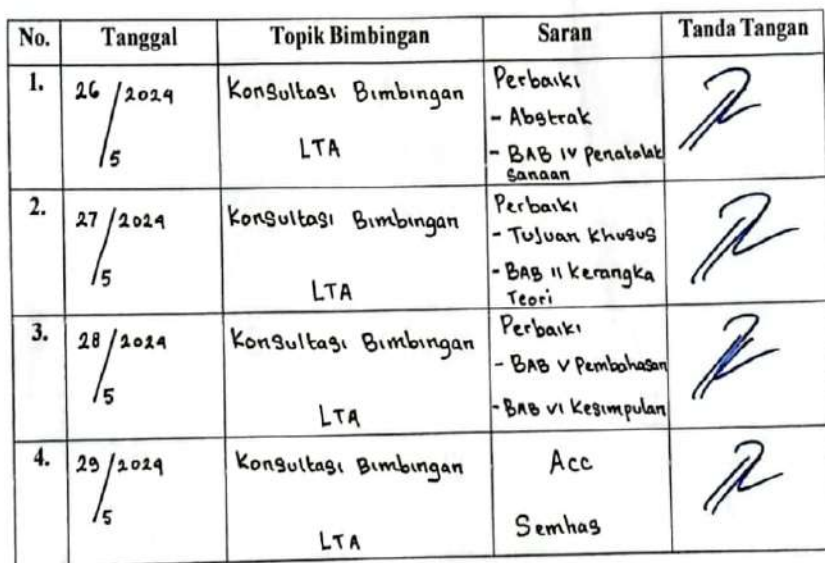 No. Tanggal Topik Bimbingan Saran Tanda Tangan
1. 26/5 2024 Konsultasi Bimbingan LTA
Perbaiki
- Abstrak
- BAB IV Penatalak
sanaan
2. 27/5 2024 Konsultasi Bimbingan LTA
Perbaiki
- Tujuan Khusus
- BAB II Kerangka
Teori
3. 28/5 2024 Konsultasi Bimbingan LTA
Perbaiki
- BAB V Pembahasan
- BAB VI Kesimpulan
4. 29/5 2024 Konsultasi Bimbingan LTA
Acc
Semhas